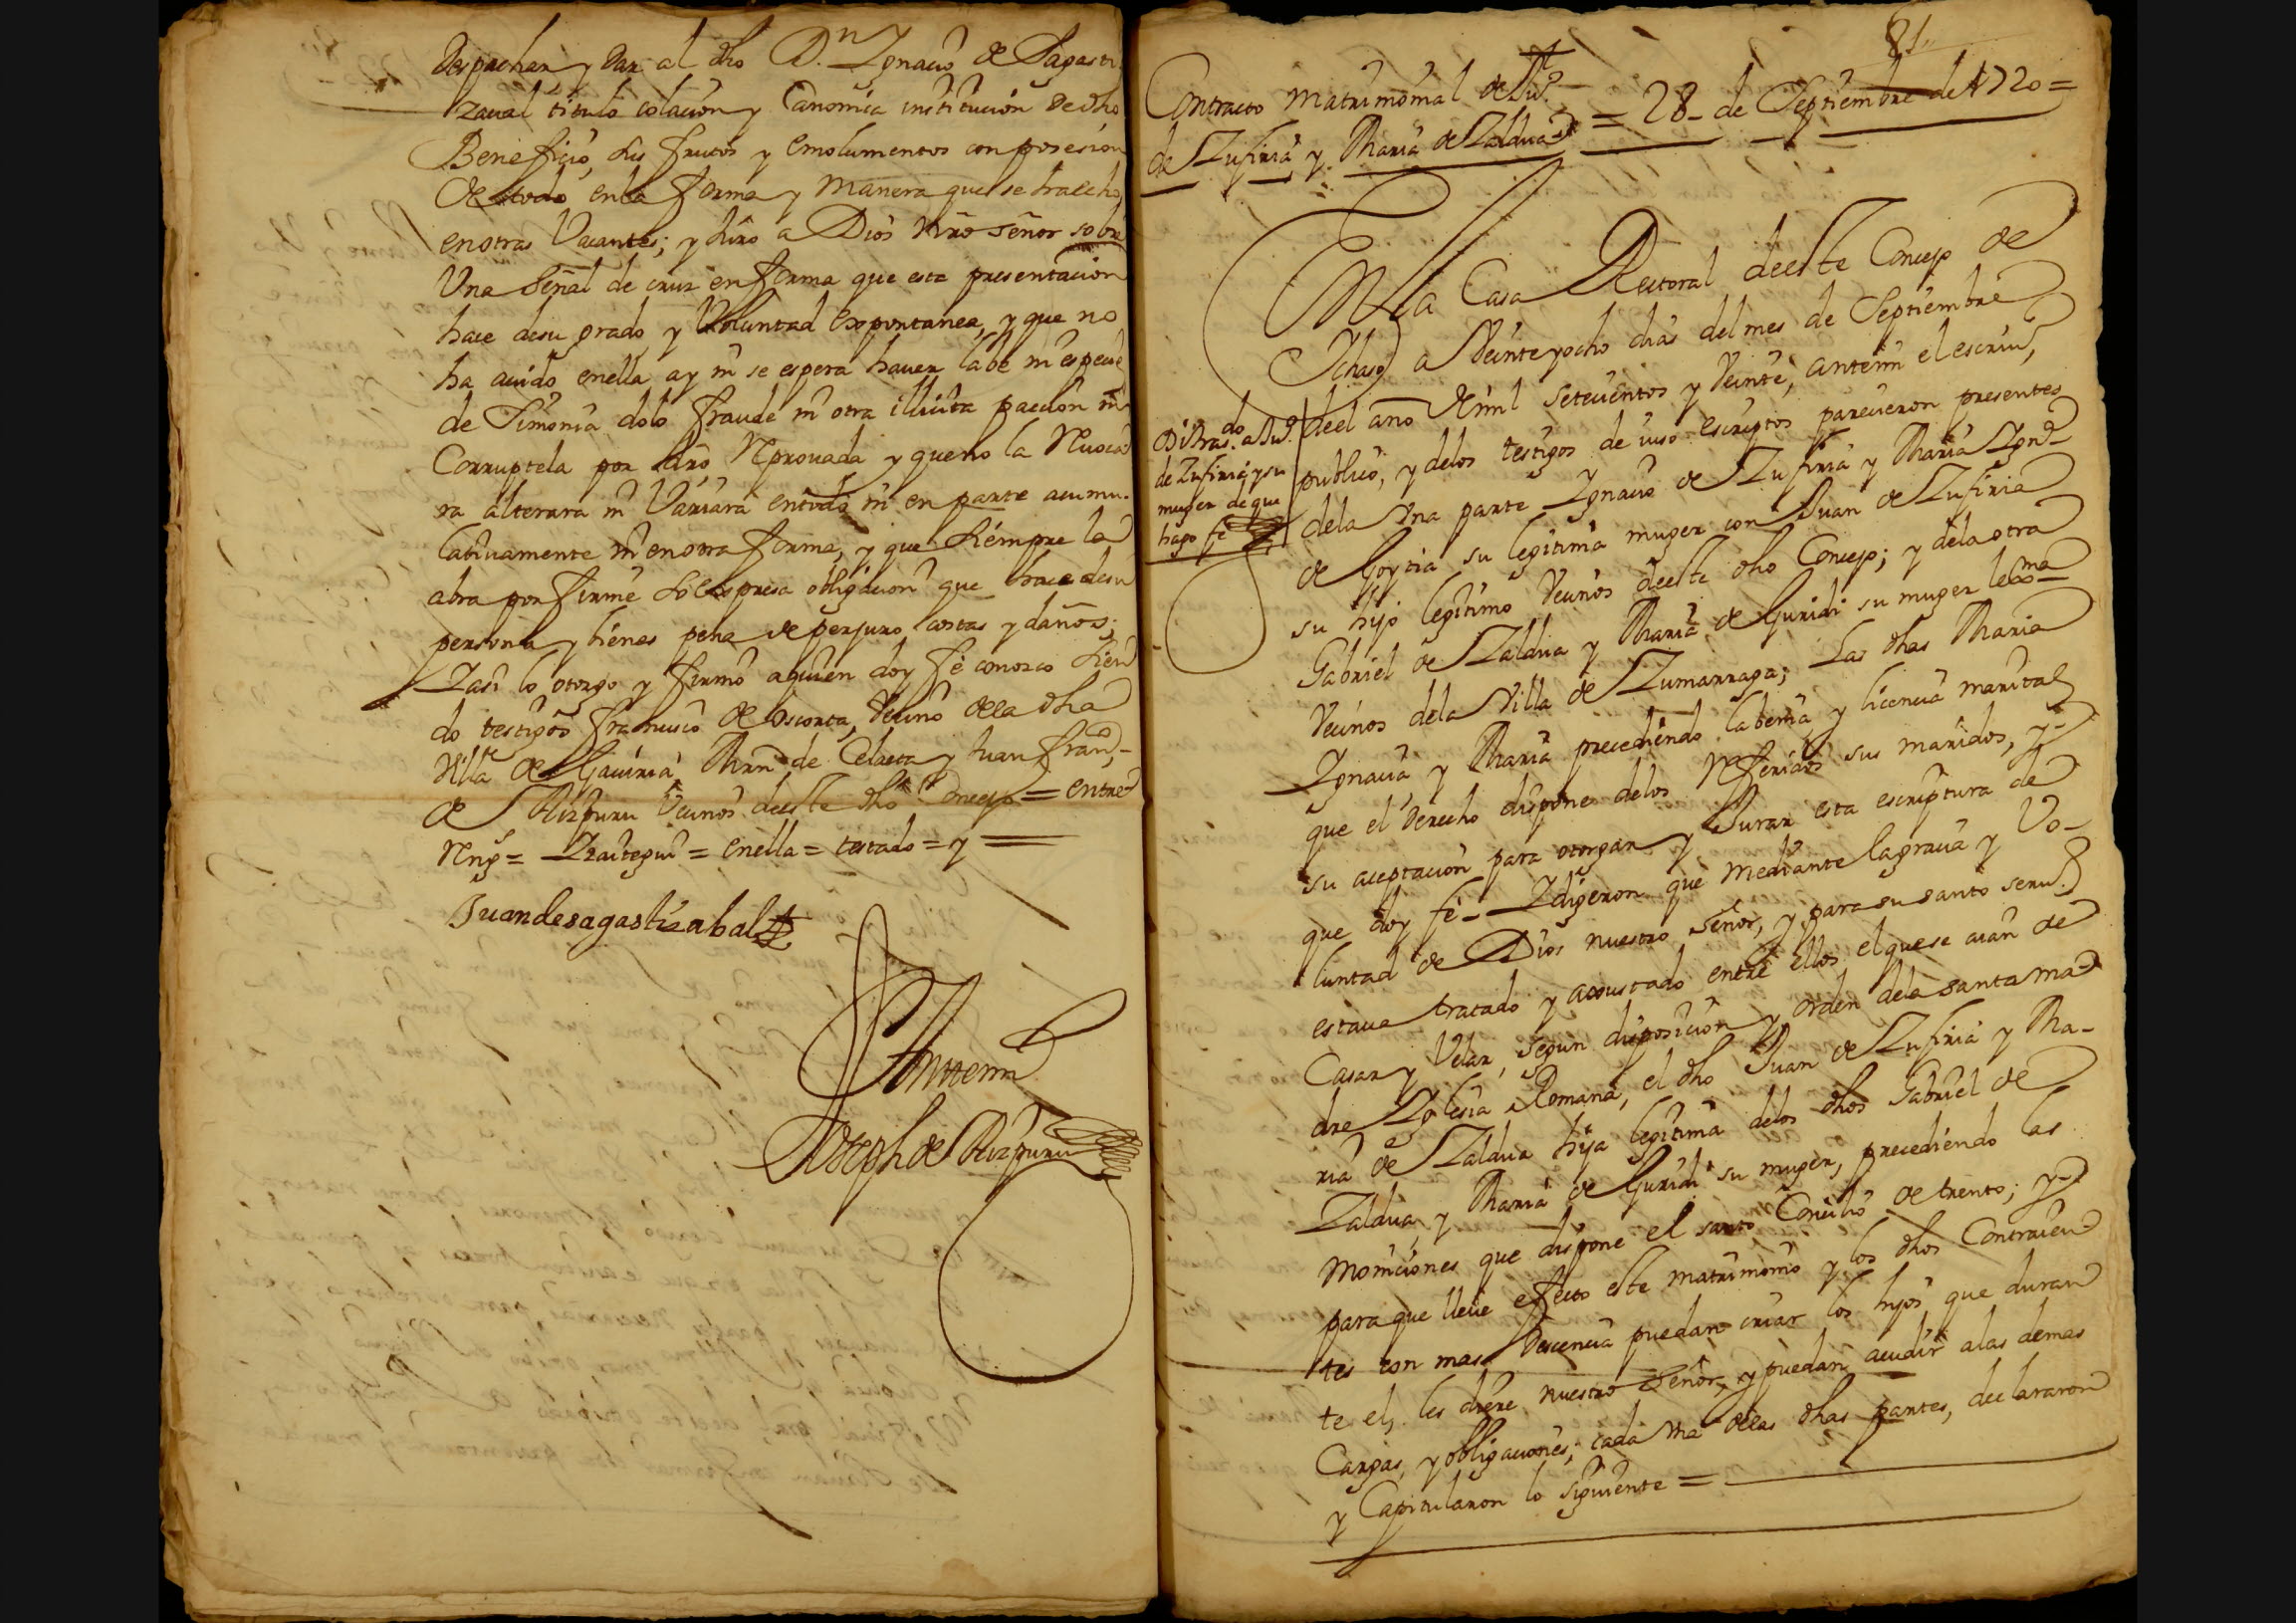 despachar y dar al dho D.n Ygnacio de Sagasti
zaval titulo colacion y Canonica institucion de dho
Beneficio, sus frutos y emolumentos con posesion
de todo en la forma y manera que se ha echo
en otras Vacantes; y Juro a Dios nro señor sobre
Una señal de cruz en forma que esta presentacion
hace de su grado y Voluntad espontanea, y que no
ha auido en ella ay ni se espera hauer labe ni especie
de Simonia dolo fraude ni otra illicita paccion ni
Corruptela por dro Reprouada y que no la Reuoca
ra alterara ni Variara en todo ni en parte acumu-
latiuamente ni en otra forma, y que siempre la
abra por firme so espresa obligacion que hace de su
persona y bienes pena de perjuro costas y daños;
Y asi lo otorgo y firmo a quien doy fe conozco sien
do testigos francisco de Oiconta, Vecino de la dha
Villa de Gauiria, Mrn de Celaeta y Juan fran.co
de Aizpuru Vecinos de este dho Concejo = entre
Reng.s = Yraitegui = en ella = testado = y =
Juan de sagastizabal
Ante mi
Joseph de Aizpuru
81
Contracto matrimonial de Ju.o
de Zufiria y Maria de Zaldua = 28 - de Septiembre de 1720 =
En la Casa Rectoral de este Concejo de
Ychaso a Veinte y ocho dias del mes de Septiembre
del año de mil setecientos y Veinte, ante mi el escriu.o
publico, y de los testigos de iuso escriptos parecieron presentes
de la Vna parte Ygnacio de Zufiria y Maria Ygn.a
de Goytia su legitima muger con Juan de Zufiria
su hijo legitimo Vecinos de este dho Concejo; y de la otra
Gabriel de Zaldua y Maria de Guridi su muger lexma
Vecinos de la Villa de Zumarraga; Las dhas Maria
Ygnacia y Maria precediendo la benia y licencia marital
que el derecho dispone de los Referidos sus maridos, y
su aceptacion para otorgar y Jurar esta escriptura de
que doy fe - Y digeron que mediante la gracia y Vo-
luntad de Dios nuestro señor, y para su santo seru.o
estaua tratado y acoustado entre ellos el que se aian de
Casar y Velar, segun disposicion y orden de la santa ma
dre Yglesia Romana, el dho Juan de Zufiria y Ma-
ria de Zaldua hija legitima de los dhos Gabriel de
Zaldua y Maria de Guridi su muger, precediendo las
moniciones que dispone el santo Concilio de trento; y
para que lleue efecto este matrimonio y los dhos Contraien
tes con mas decencia puedan criar los hijos que duran
te el, les diere nuestro Señor, y puedan acudir a las demas
Cargas, y obligaciones; cada Vna de las dhas partes, declararon
y Capitularon lo siguiente =
Di tras.do a Ju.o
de Zufiria y su
muger de que
hago fe